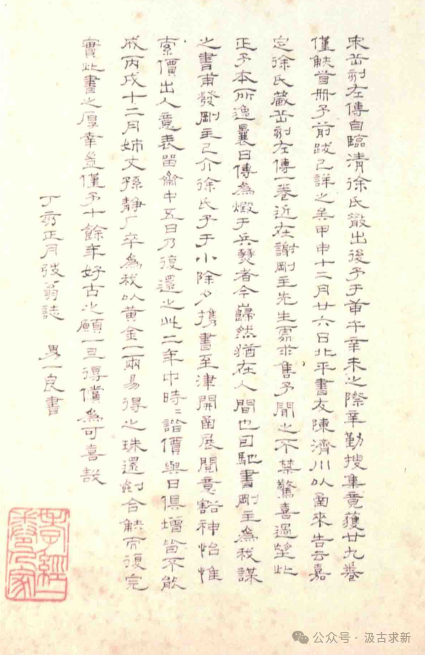 宋岳刻左传自臨清徐氏散出後予于首千辛未之際辛勤搜集竟獲廿九卷
僅缺首册予前跋已詳之矣甲申十二月廿六日北平書友陳濟川以函來告云嘉
定徐氏藏岳刻左傳一卷近在謝剛主先生處求售予聞之不禁驚喜過望此
正予本所逸曩日傳為燬于兵燹者今巋然猶在人間也因馳書剛主為我謀
之書甫發剛主已介徐氏子于小除夕攜書至津開函展閱竟豁神怡惟
索價出人意表留齋中五日乃復還之此二年中時時諧價與日俱增皆不能
成丙戌十二月姊丈孫静厂卒為我以黄金一兩易得之珠還劍合缺而復完
實此書之厚幸豈僅予十餘年好古之願一旦得償為可喜哉
丁亥正月弢翁誌 男一良書
公众号·汲古求新